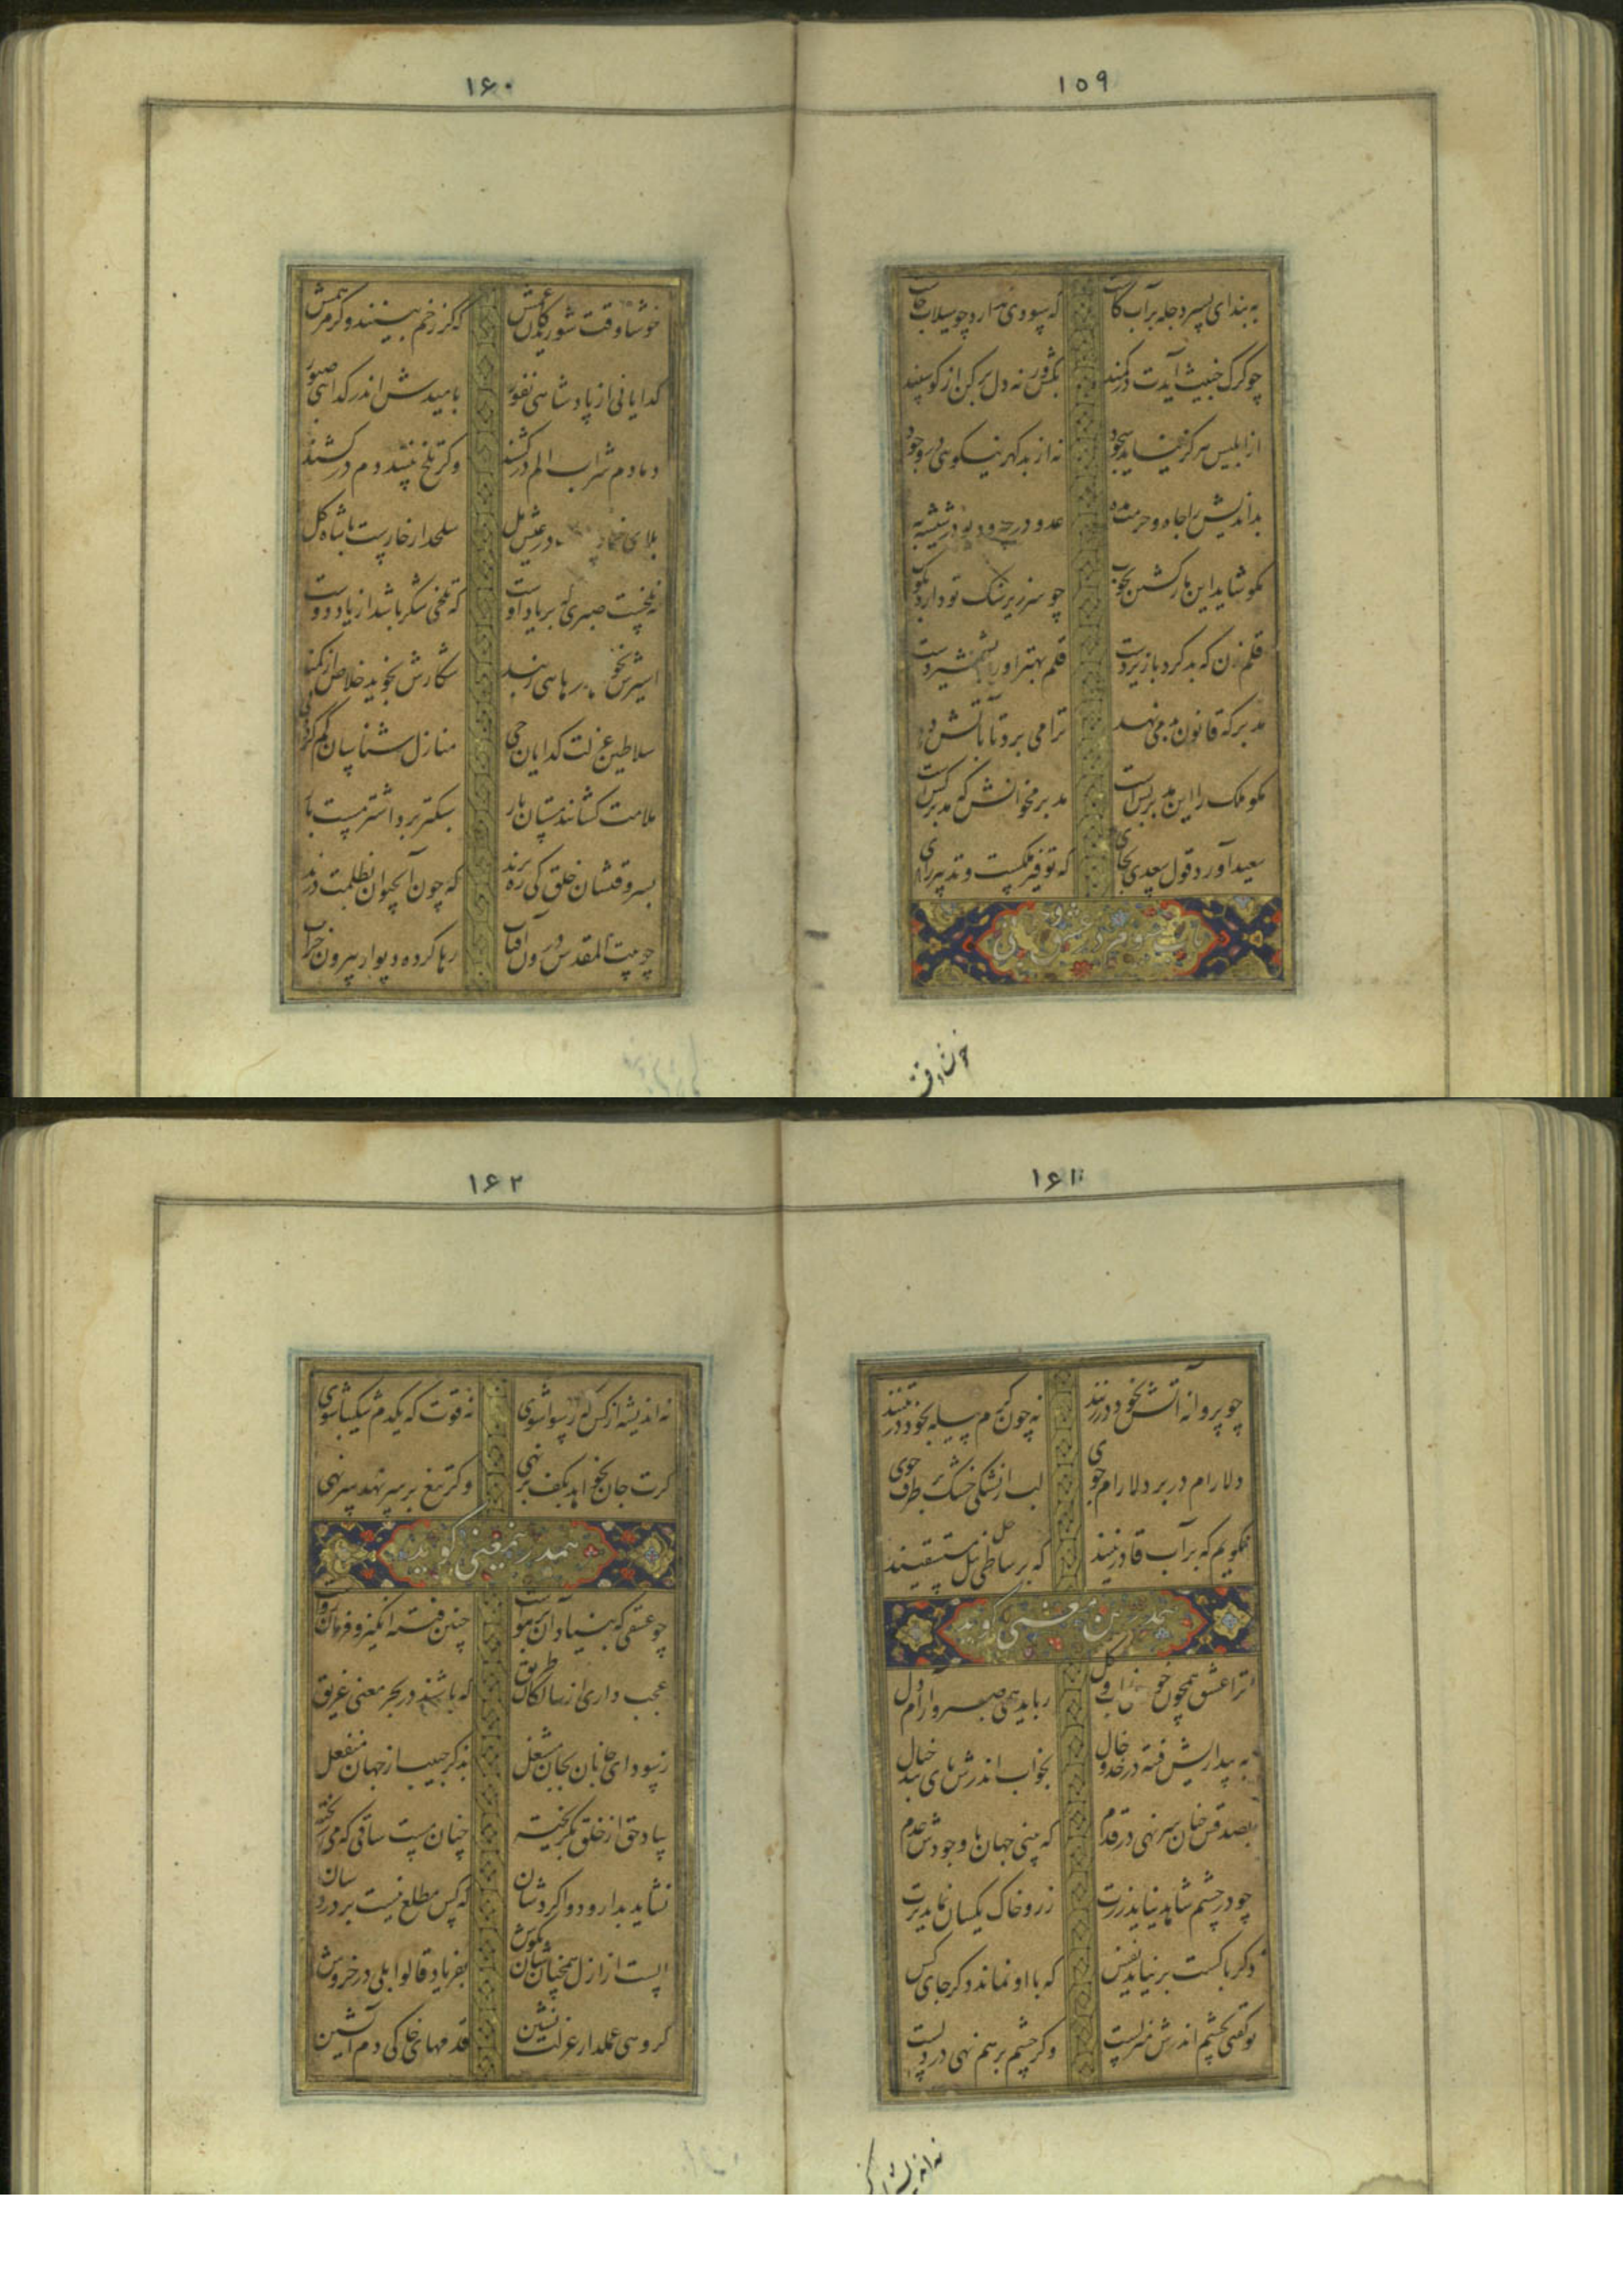 ۱۵۹
به بند ای پسر دجله بر آب کاست
که سودی ندارد چو سیلاب خاست
چو گرگ خبیث آیدت در کمند
بکش ورنه دل بر کن از گوسپند
از ابلیس هرگز نیاید سجود
نه از بد گهر نیکویی در وجود
بداندیش را جاه و حرمت مده
عدو در چه و دیو در شیشه به
مگو شاید این مار کشتن بچوب
چو سر زیر سنگ تو دارد بکوب
قلم زن که بد کرد با زیردست
قلم بهتر او را بشمشیر دست
مدبر که قانون بد می نهد
ترا می برد تا بآتش دهد
مگو ملک را این مدبر بس است
مدبر مخوانش که مدبر کس است
سعید آورد قول سعدی بجای
که توفیر ملکست و تدبیر رای
باب سوم در عشق
خوشا وقت
۱۶۰
خوشا وقت شوریدگان غمش
که گر زخم بینند و گر مرهمش
گدایانی از پادشاهی نفور
بامیدش اندر گدایی صبور
دمادم شراب الم در کشند
وگر تلخ بینند دم در کشند
بلای خمار در عیش مل
سلحدار خارست با شاه گل
نه تلخست صبری که بر یاد اوست
که تلخی شکر باشد از یاد دوست
اسیرش نخواهد رهایی ز بند
شکارش نجوید خلاص از کمند
سلاطین عزلت گدایان حی
منازل شناسان گم کرده پی
ملامت کشانند مستان یار
سبکتر برد اشتر مست بار
بسر وقتشان خلق کی ره برند
که چون آب حیوان بظلمت درند
چو بیت المقدس درون آفتاب
رها کرده دیوار بیرون خراب
۱۶۱
چو پروانه آتش بخود در زنند
نه چون کرم پیله بخود در تنند
دلارام در بر دلارام جوی
لب از تشنگی خشک بر طرف جوی
نگویم که بر آب قادر نیند
که بر ساحل نیل مستسقیند
هم در این معنی گوید
ترا عشق همچون خودی ز آب و گل
رباید همی صبر و آرام دل
به بیداریش فتنه در خد و خال
بخواب اندرش پای بند خیال
بصدقش چنان سر نهی در قدم
که بینی جهان با وجودش عدم
چو در چشم شاهد نیاید زرت
زر و خاک یکسان نماید برت
دگر با کست بر نیاید نفس
که با او نماند دگر جای کس
تو گفتی بچشم اندرش منزلست
وگر چشم بر هم نهی در دلست
نه اندیشه از کس
۱۶۲
نه اندیشه از کس که رسوا شوی
نه قوت که یکدم شکیبا شوی
گرت جان بخواهد بکف بر نهی
وگر تیغ بر سر نهد سر نهی
هم در این معنی گوید
چو عشقی که بنیاد آن بر هواست
چنین فتنه انگیز و فرمان رواست
عجب داری از سالکان طریق
که باشند در بحر معنی غریق
ز سودای جانان بجان مشتغل
بذکر حبیب از جهان منفعل
بیاد حق از خلق بگریخته
چنان مست ساقی که می ریخته
نشاید بدارو دوا کردشان
که کس مطلع نیست بر دردشان
الست از ازل همچنان شان بگوش
بفریاد قالوا بلی در خروش
گروهی عملدار عزلت نشین
قدمهای خاکی دم آتشین